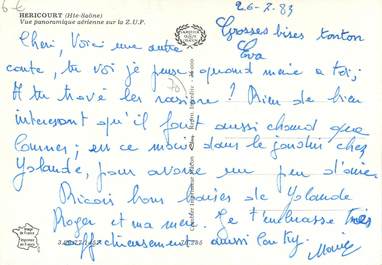 6 €
HERICOURT (Hte-Saône)
Vue panoramique aérienne sur la Z.U.P.
26-7-83
Grosses bises tonton
Eva
Cheri, Voici une autre
carte, tu voi je pense quand meme a toi,
A tu trouvé les rasoirs ? Rien de bien
interessant qu'il fait aussi chaud que
Cannes ; en ce mom dans le jardin chez
Yolande, pour avoir un peu d'air
bons baisers de Yolande
Roger et ma mere. Je t'embrasse très
affectueusement aussi
Marie